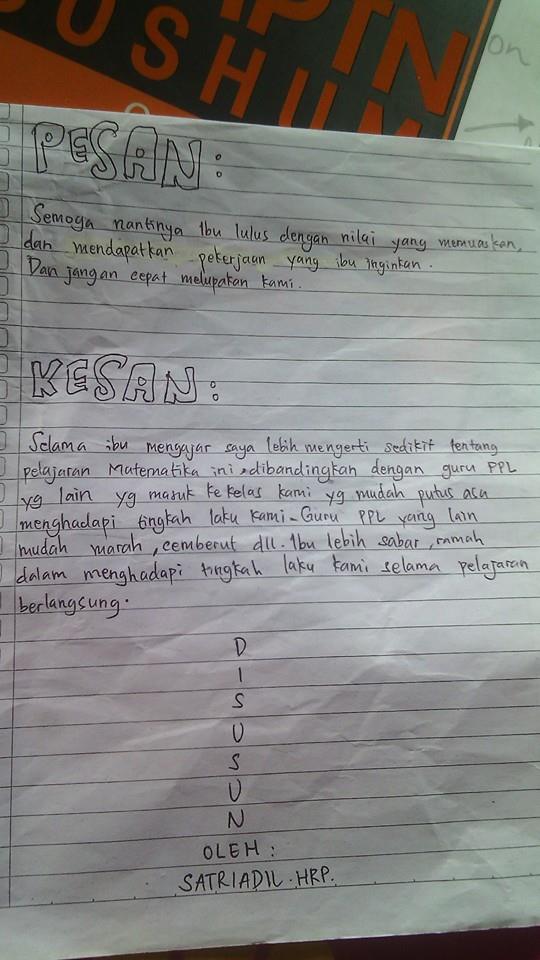 OSHUM
IPTN
on
PESAN :
Semoga nantinya Ibu lulus dengan nilai yang memuaskan,
dan mendapatkan pekerjaan yang ibu inginkan.
Dan jangan cepat melupakan kami.
KESAN :
Selama ibu mengajar saya lebih mengerti sedikit tentang
pelajaran Matematika ini, dibandingkan dengan guru PPL
yg lain yg masuk ke kelas kami yg mudah putus asa
menghadapi tingkah laku kami. Guru PPL yang lain
mudah marah, cemberut dll. Ibu lebih sabar, ramah
dalam menghadapi tingkah laku kami selama pelajaran
berlangsung.
D
I
S
U
S
U
N
OLEH :
SATRIADIL.HRP.